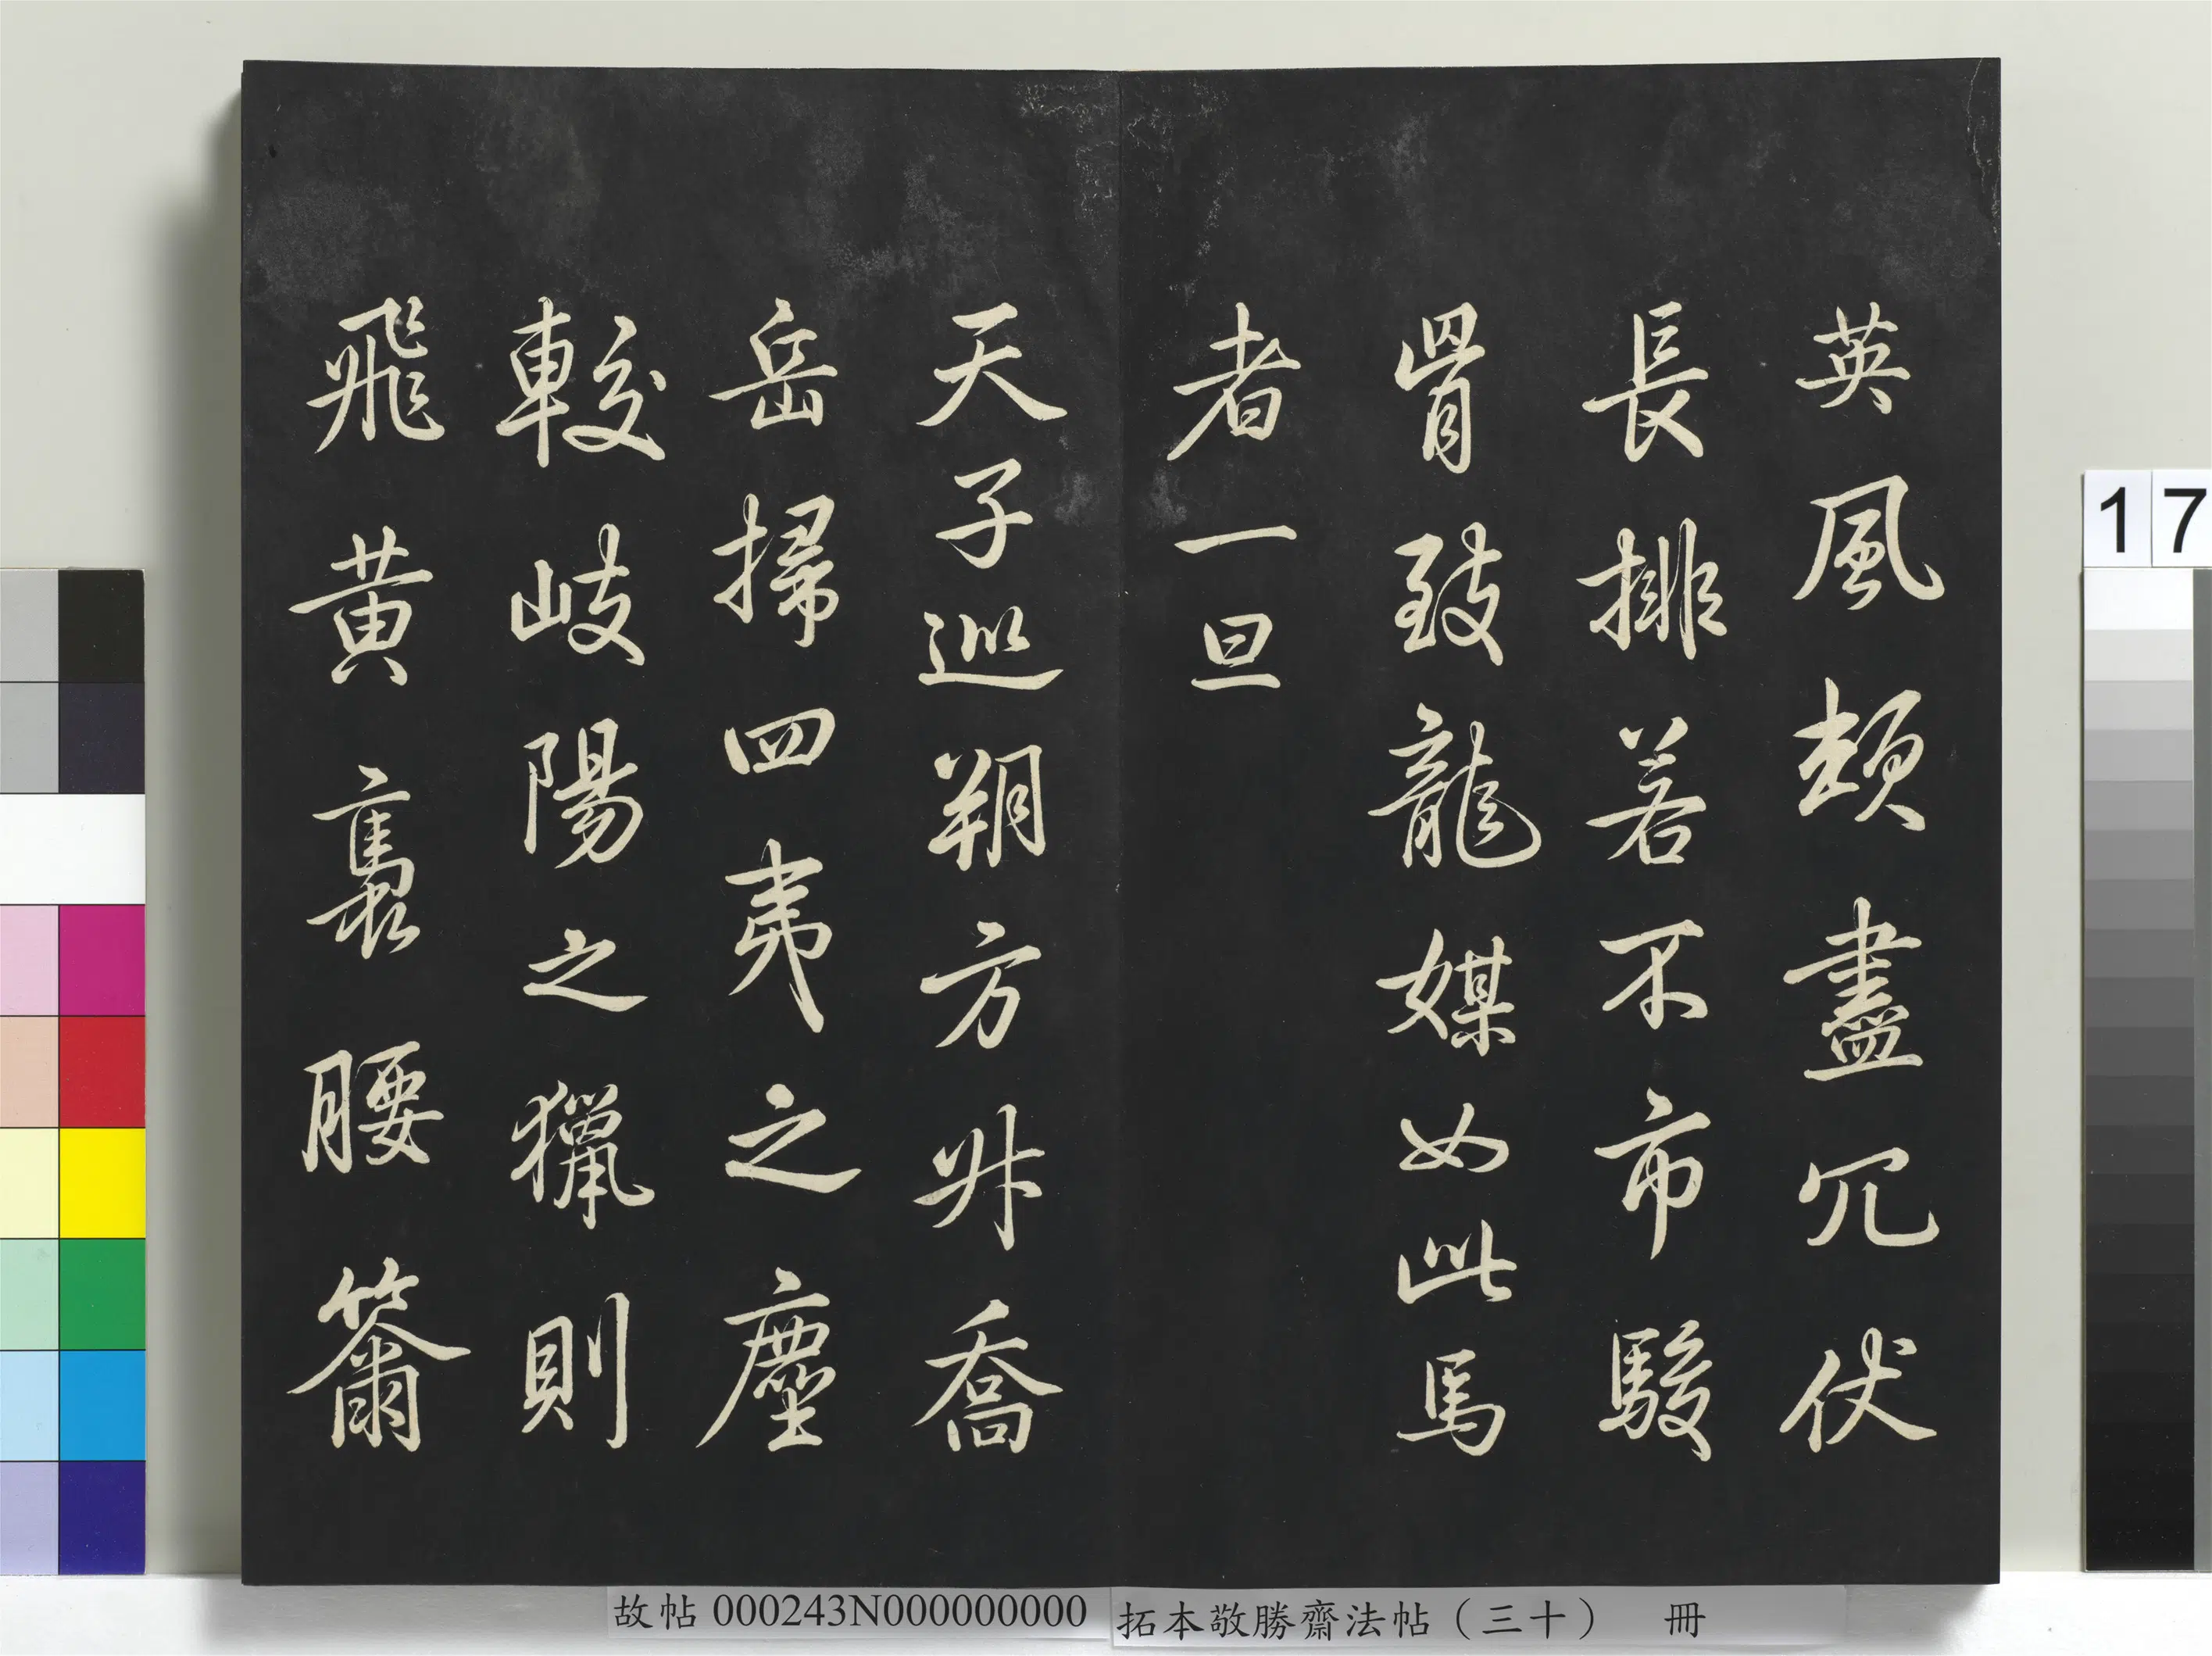 英風頓盡冗仗
長排若不市駿
骨致龍媒如此馬
者一旦
天子巡朔方升喬
岳掃四夷之塵
較岐陽之獵則
飛黃褭腰籋
17
故帖 000243N000000000
拓本敬勝齋法帖（三十） 冊